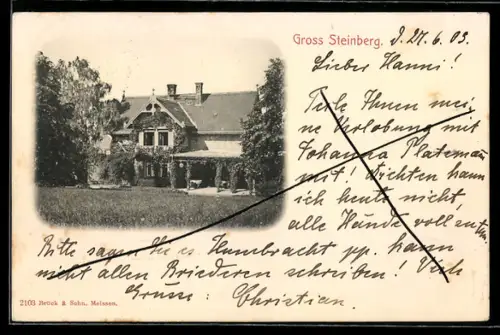 Gross Steinberg. d. 27. 6. 03.
Lieber Hanni!
Teile Ihnen mei-
ne Verlobung mit
Johanna Platzman
mit! Dichten kann
ich heute nicht,
alle Hände voll zu tun
Bitte sagen Sie es Humbracht pp. kann
nicht allen Briederen schreiben! Viele
Grüsse: Christian.
2103 Brück & Sohn, Meissen.